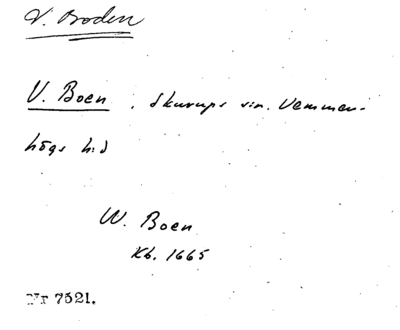 V. Boden
V. Boen, Skurups sn. Vemmen-
högs hd
W. Boen
Kb. 1665
Nr 7521.